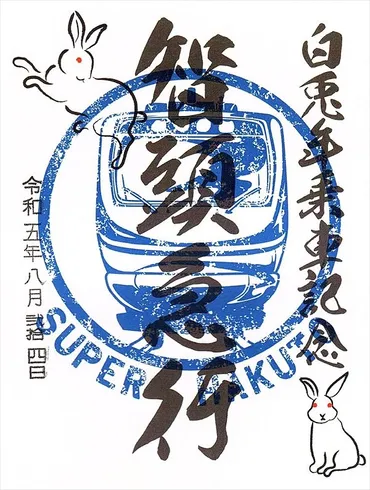 白兎年乗車記念
智頭急行
令和五年八月弐拾四日
SUPER HAKUTO